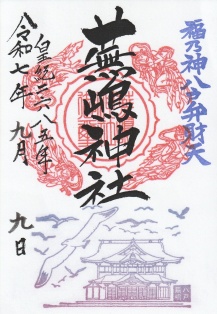 稲乃神八 弁財天
蕪嶋神社
皇紀二六八五年
令和七年九月
九日